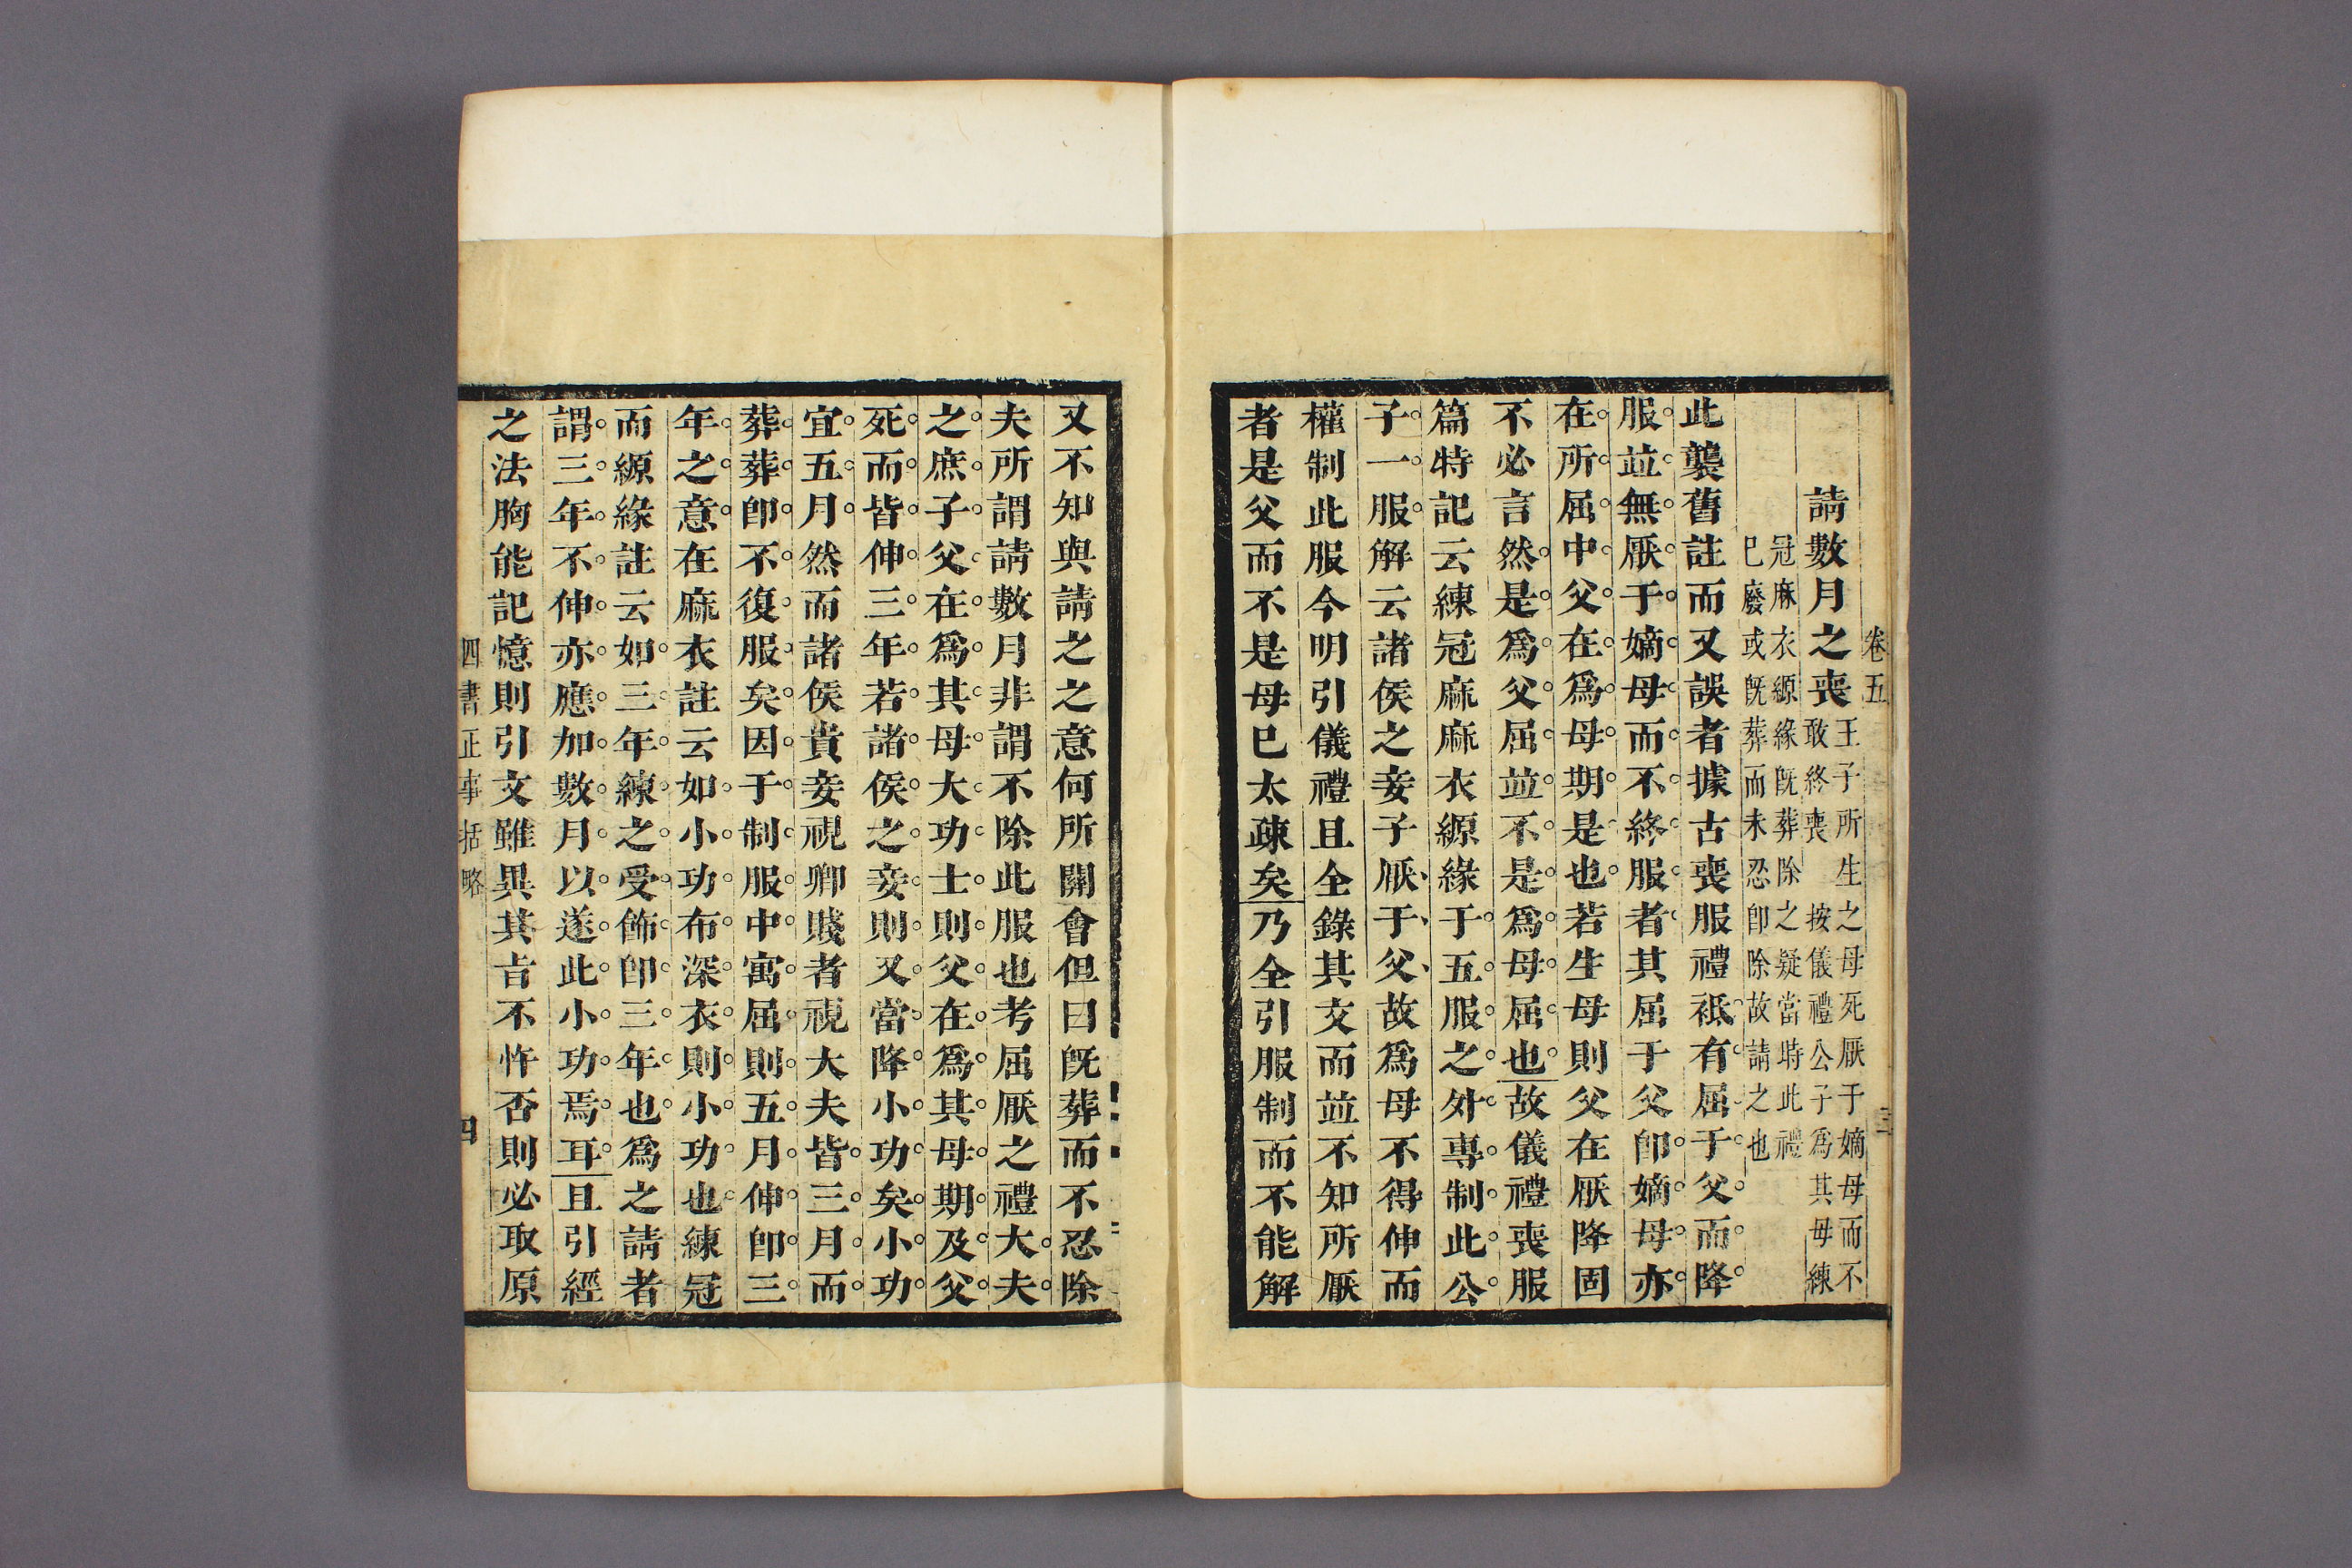 卷五
三
請數月之喪
王子所生之母死厭于嫡母而不
敢終喪 按儀禮公子爲其母練
冠麻衣縓緣旣葬除之疑當時此禮
已廢或旣葬而未忍卽除故請之也
此襲舊註而又誤者據古喪服禮祇有屈于父而降
服並無厭于嫡母而不終服者其屈于父卽嫡母亦
在所屈中父在爲母期是也若生母則父在厭降固
不必言然是爲父屈並不是爲母屈也故儀禮喪服
篇特記云練冠麻麻衣縓緣于五服之外專制此公
子一服解云諸侯之妾子厭于父故爲母不得伸而
權制此服今明引儀禮且全錄其文而並不知所厭
者是父而不是母已太疎矣乃全引服制而不能解
又不知與請之之意何所關會但曰旣葬而不忍除
夫所謂請數月非謂不除此服也考屈厭之禮大夫
之庶子父在爲其母大功士則父在爲其母期及父
死而皆伸三年若諸侯之妾則又當降小功矣小功
宜五月然而諸侯貴妾視卿賤者視大夫皆三月而
葬葬卽不復服矣因于制服中寓屈則五月伸卽三
年之意在麻衣註云如小功布深衣則小功也練冠
而縓緣註云如三年練之受飾卽三年也爲之請者
謂三年不伸亦應加數月以遂此小功焉耳且引經
之法胸能記憶則引文雖異其旨不忤否則必取原
四書正事括略
四